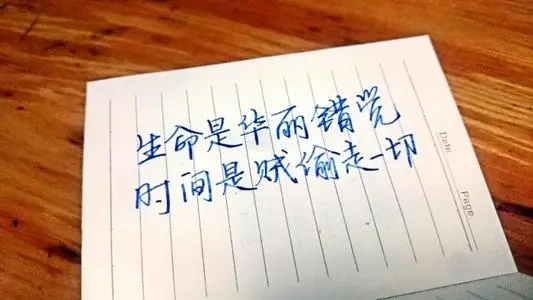 生命是华丽错觉
时间是贼偷走一切
Date
Page.